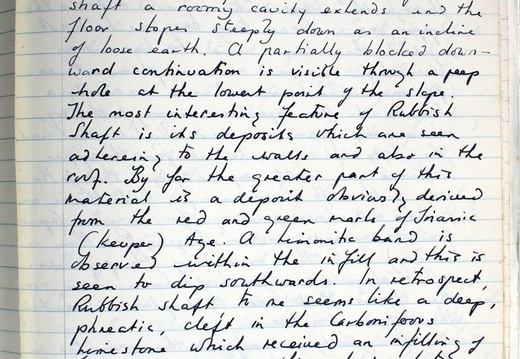 shaft a roomy cavity extends and the
floor slopes steeply down as an incline
of loose earth. A partially blocked down-
ward continuation is visible through a peep
hole at the lowest point of the slope.
The most interesting feature of Rubbish
Shaft is its deposits which are seen
adhereing to the walls and also in the
roof. By far the greater part of this
material is a deposit obviously derived
from the red and green marls of Triassic
(Keuper) Age. A limonitic band is
observed within the infill and this is
seen to dip southwards. In retrospect,
Rubbish shaft to me seems like a deep,
phreatic, cleft in the Carboniferous
limestone which received an infilling of